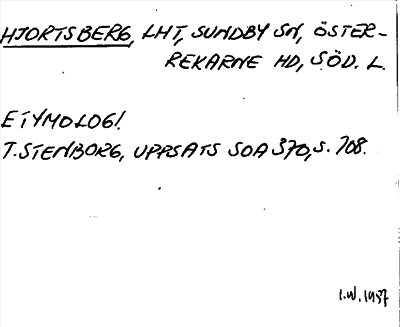 HJORTSBERG, LHT, SUNDBY SN, ÖSTER-
REKARNE HD, SÖD. L.
ETYMOLOGI.
T. STENBORG, UPPSATS SOA 370, S. 108.
I.W. 1957